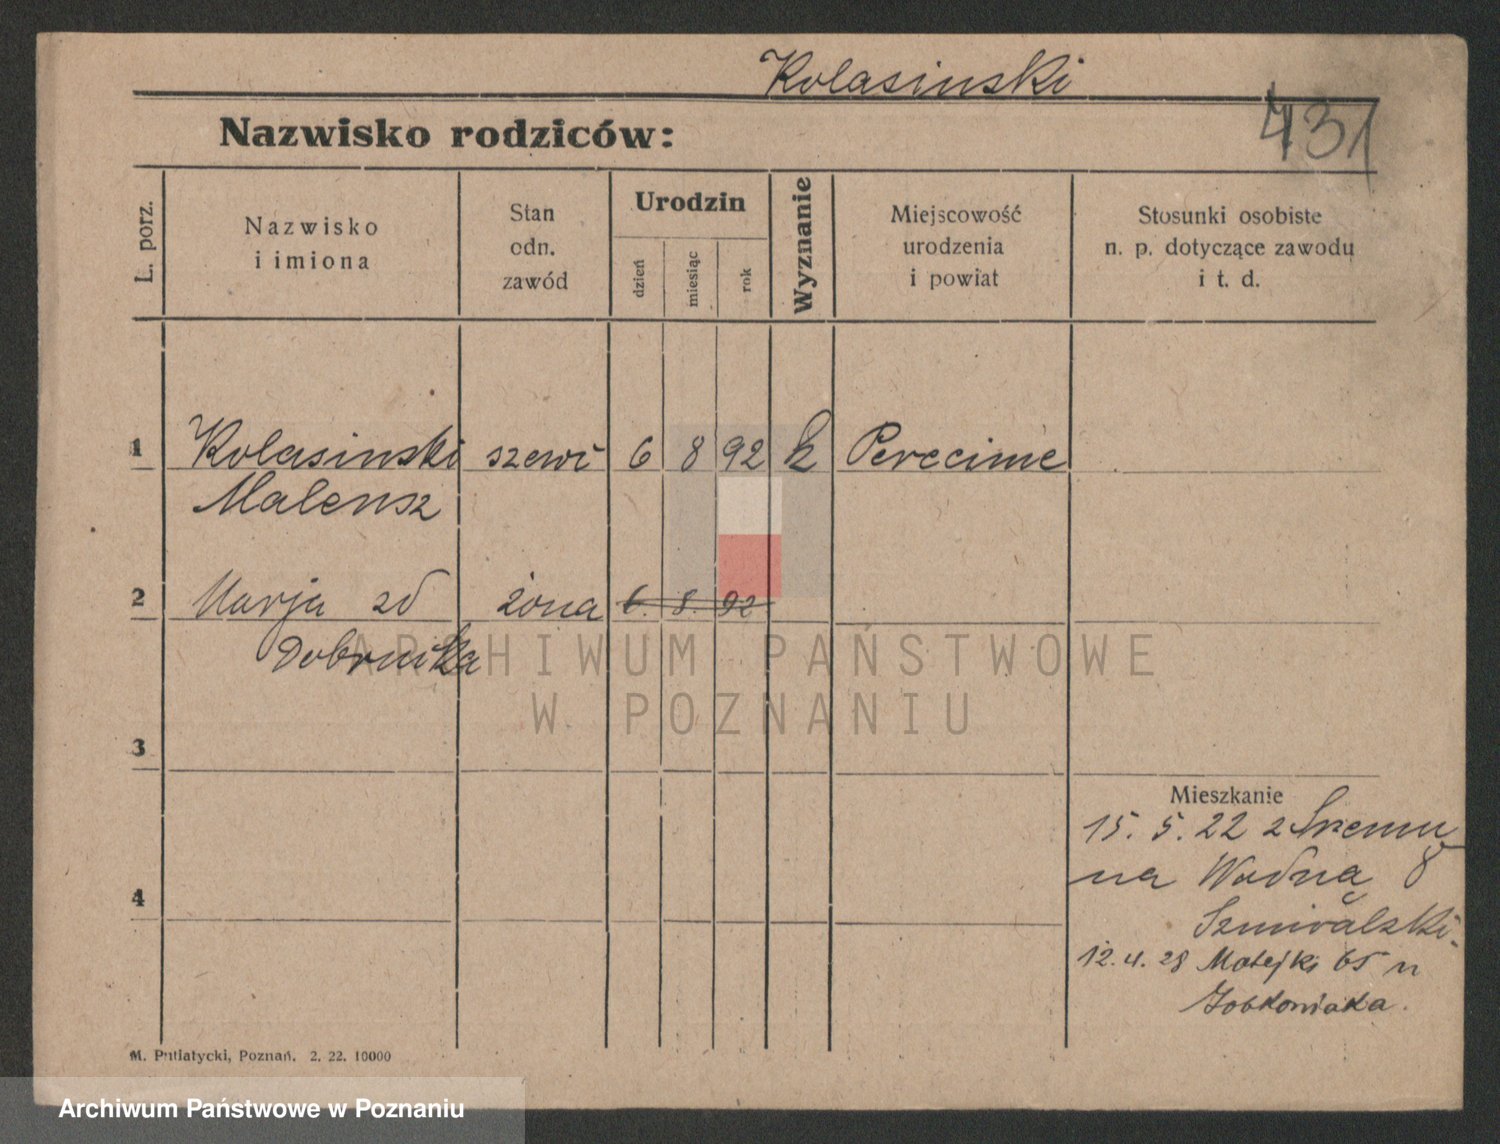 Kolasinski
431
Nazwisko rodziców:
L. porz.
Nazwisko
i imiona
Stan
odn.
zawód
Urodzin
dzień
miesiąc
rok
Wyznanie
Miejscowość
urodzenia
i powiat
Stosunki osobiste
n. p. dotyczące zawodu
i t. d.
1 Kolasinski szewc 6 8 92 k
2 Marja zd żona 6. 8. 92
3
4
Mieszkanie
15. 5. 22 z Śremu
na Wodną 8
12. 4. 28 Matejki 65 u
M. Putiatycki, Poznań. 2. 22. 10000
ARCHIWUM PAŃSTWOWE
W POZNANIU
Archiwum Państwowe w Poznaniu